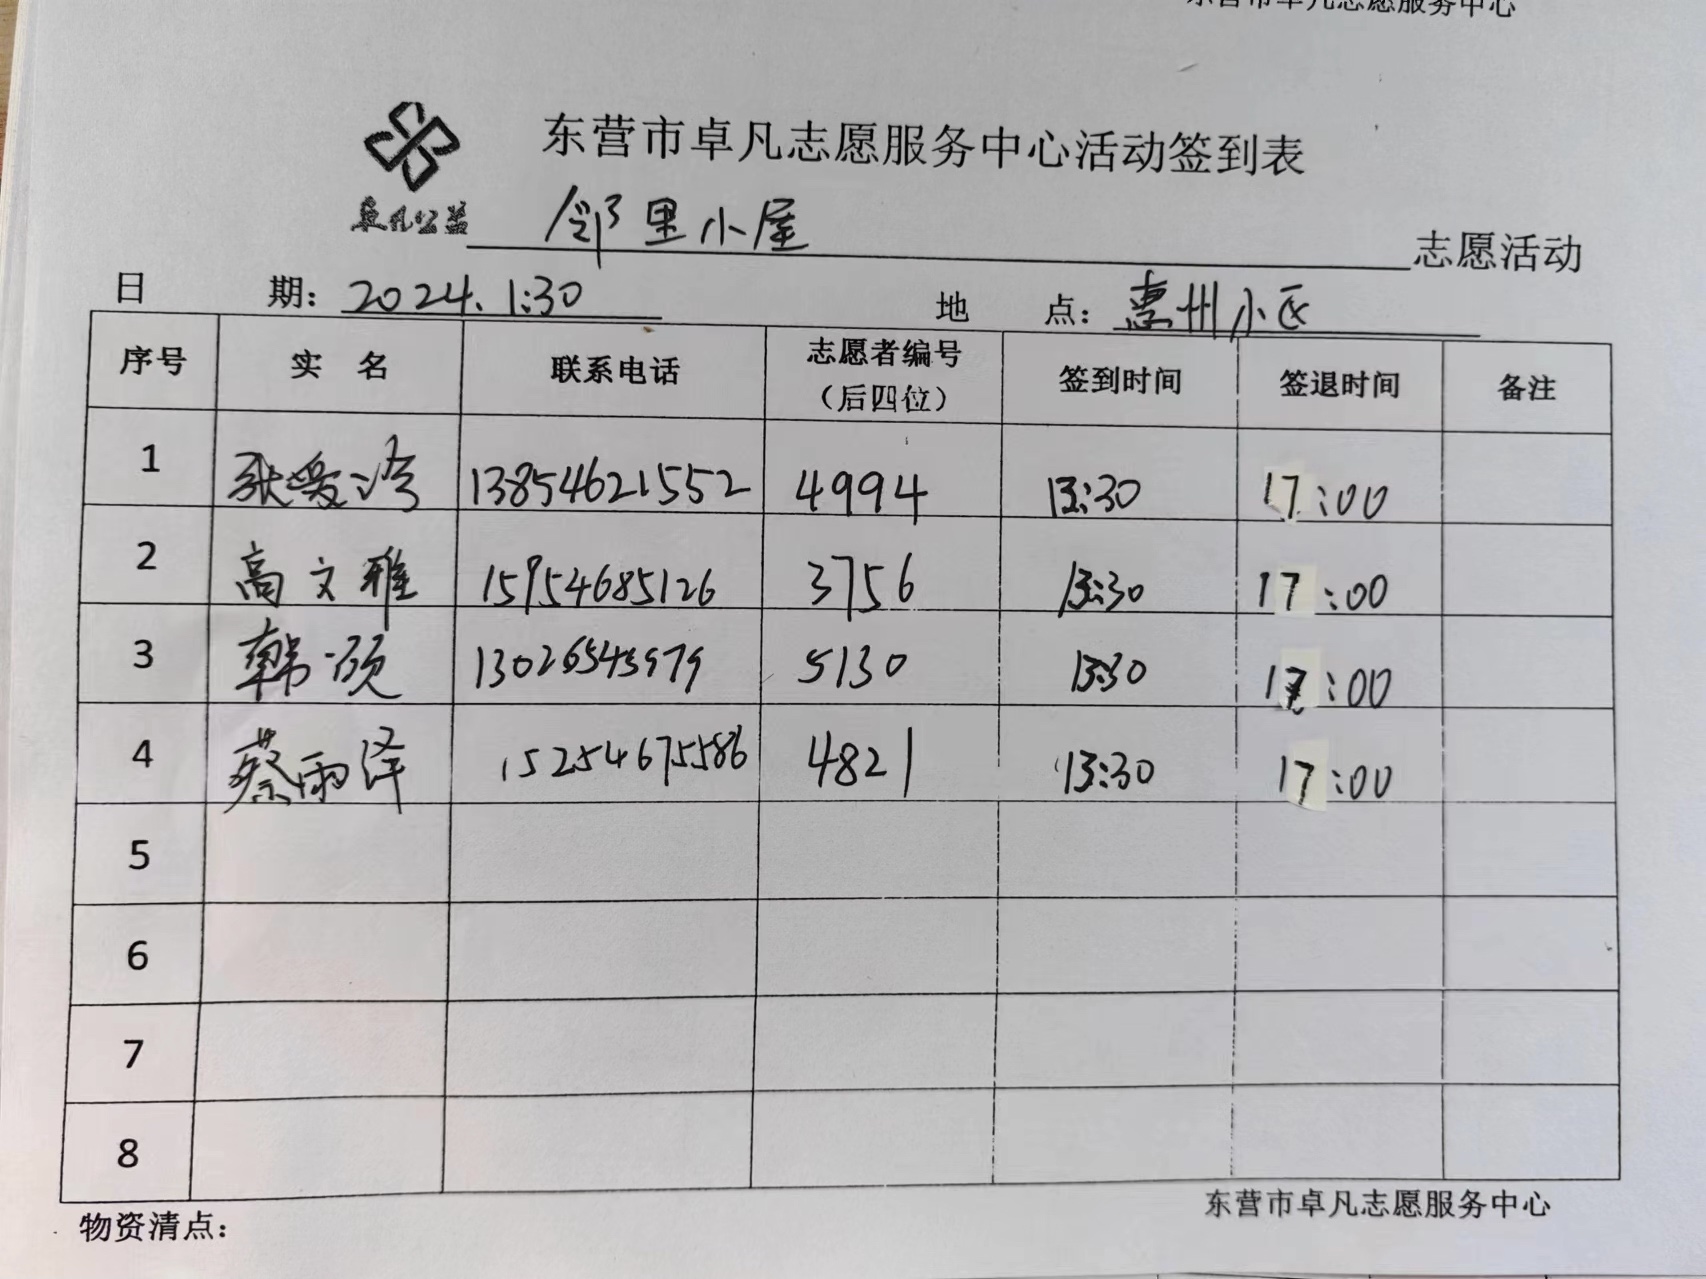 东营市卓凡志愿服务中心
东营市卓凡志愿服务中心活动签到表
卓凡公益 邻里小屋 志愿活动
日 期：2024.1.30 地 点：惠州小区
序号 实 名 联系电话 志愿者编号（后四位） 签到时间 签退时间 备注
1 张爱玲 13854621552 4994 13:30 17:00
2 高文雅 15954685126 3756 13:30 17:00
3 韩硕 13026545979 5130 13:30 17:00
4 蔡雨泽 15254675586 4821 13:30 17:00
5
6
7
8
物资清点：
东营市卓凡志愿服务中心